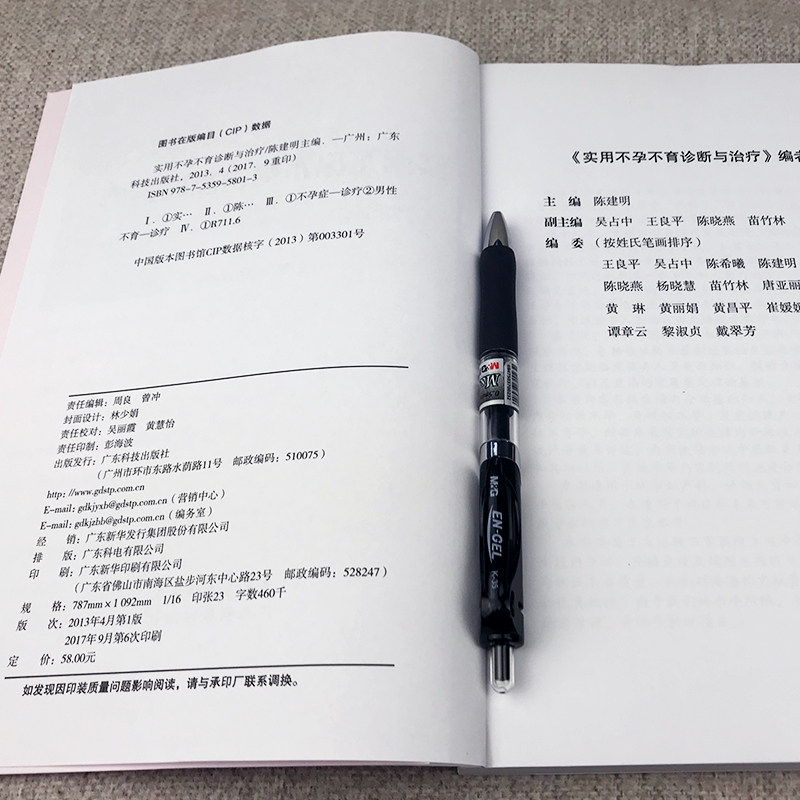 图书在版编目（CIP）数据
实用不孕不育诊断与治疗/陈建明主编．—广州：广东
科技出版社，2013．4（2017．9重印）
ISBN 978-7-5359-5801-3
Ⅰ．①实… Ⅱ．①陈… Ⅲ．①不孕症—诊疗②男性
不育—诊疗 Ⅳ．①R711.6
中国版本图书馆CIP数据核字（2013）第003301号
责任编辑：周良 曾冲
封面设计：林少娟
责任校对：吴丽霞 黄慧怡
责任印制：彭海波
出版发行：广东科技出版社
（广州市环市东路水荫路11号 邮政编码：510075）
http://www.gdstp.com.cn
E-mail: gdkjyxb@gdstp.com.cn（营销中心）
E-mail: gdkjzbb@gdstp.com.cn（编务室）
经 销：广东新华发行集团股份有限公司
排 版：广东科电有限公司
印 刷：广东新华印刷有限公司
（广东省佛山市南海区盐步河东中心路23号 邮政编码：528247）
规 格：787mm×1 092mm 1/16 印张23 字数460千
版 次：2013年4月第1版
2017年9月第6次印刷
定 价：58.00元
如发现因印装质量问题影响阅读，请与承印厂联系调换。
《实用不孕不育诊断与治疗》编者
主 编 陈建明
副主编 吴占中 王良平 陈晓燕 苗竹林
编 委（按姓氏笔画排序）
王良平 吴占中 陈希曦 陈建明
陈晓燕 杨晓慧 苗竹林 唐亚丽
黄 琳 黄丽娟 黄昌平 崔媛媛
谭章云 黎淑贞 戴翠芳
M&G
EN-GEL
K-35